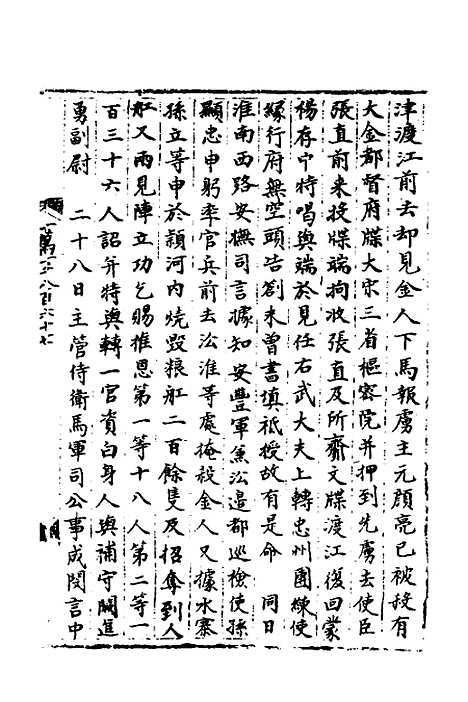 津渡江前去却見金人下馬報虜主元顔亮已被殺有
大金都督府牒大宋三省樞密院并押到先虜去使臣
張直前来投牒端拘收張直及所齎文牒渡江復回蒙
楊存中特唱與端於見任右武大夫上轉忠州團練使
緣行府無空頭告劄未曾書填祗授故有是命　同日
淮南西路安撫司言據知安豐軍兼沿邉都巡檢使孫
顯忠申躬率官兵前去沿淮等處掩殺金人又據水寨
孫立等申於潁河内燒毀粮舡二百餘隻及招奪到人
舡又兩見陣立功乞賜推恩第一等十八人第二等一
百三十六人詔并特與轉一官資白身人與補守闕進
勇副尉　二十八日主管侍衛馬軍司公事成閔言中